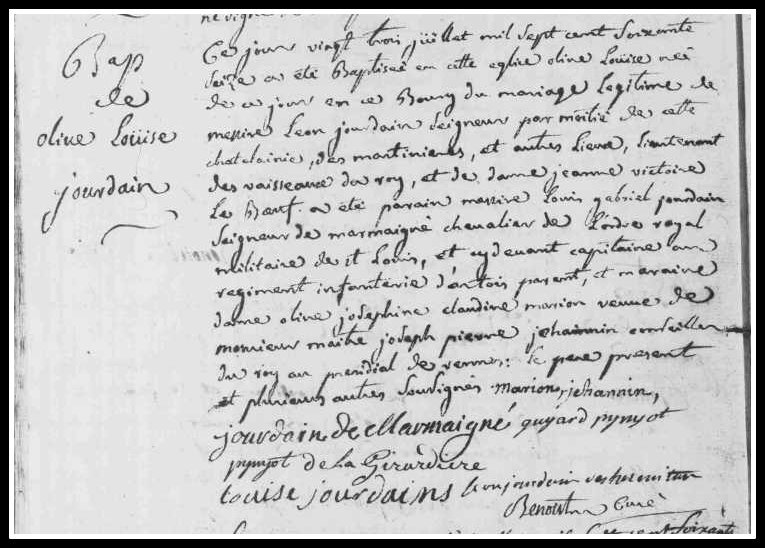 Bap
de
olive Louise
jourdain
Ce jour vingt trois juillet mil sept cent Soixante
Seize a été Baptisée en cette eglise olive Louise née
de ce jour en ce Bourg du mariage Legitime de
messire Leon jourdain Seigneur par moitié de cette
chatelainie, des martinieres, et autres Lieux, Lieutenant
des vaisseaux du roy, et de dame jeanne victoire
Le Bœuf. a été parain messire Louis gabriel jourdain
Seigneur de marmaigné chevalier de L'ordre royal
militaire de st Louis, et cydevant capitaine au
regiment infanterie d'artois parent, et maraine
dame olive josephine claudine marion veuve de
monsieur maitre joseph pierre jehannin conseiller
du roy au presidial de rennes: le pere present
et plusieurs autres Sousignés. marion jehannin,
jourdain de Marmaigné guyard pynyot
pynyot de La Girardiere
Louise jourdains Leon jourdain
Benoist Curé